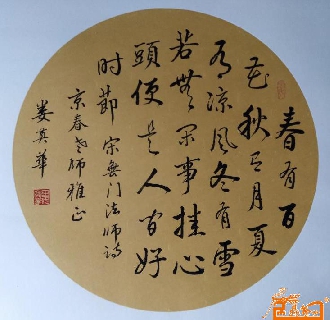 春有百
花秋有月夏
有凉风冬有雪
若无闲事挂心
頭便是人间好
时節 宋無门法师詩
京春老师雅正
娄英華